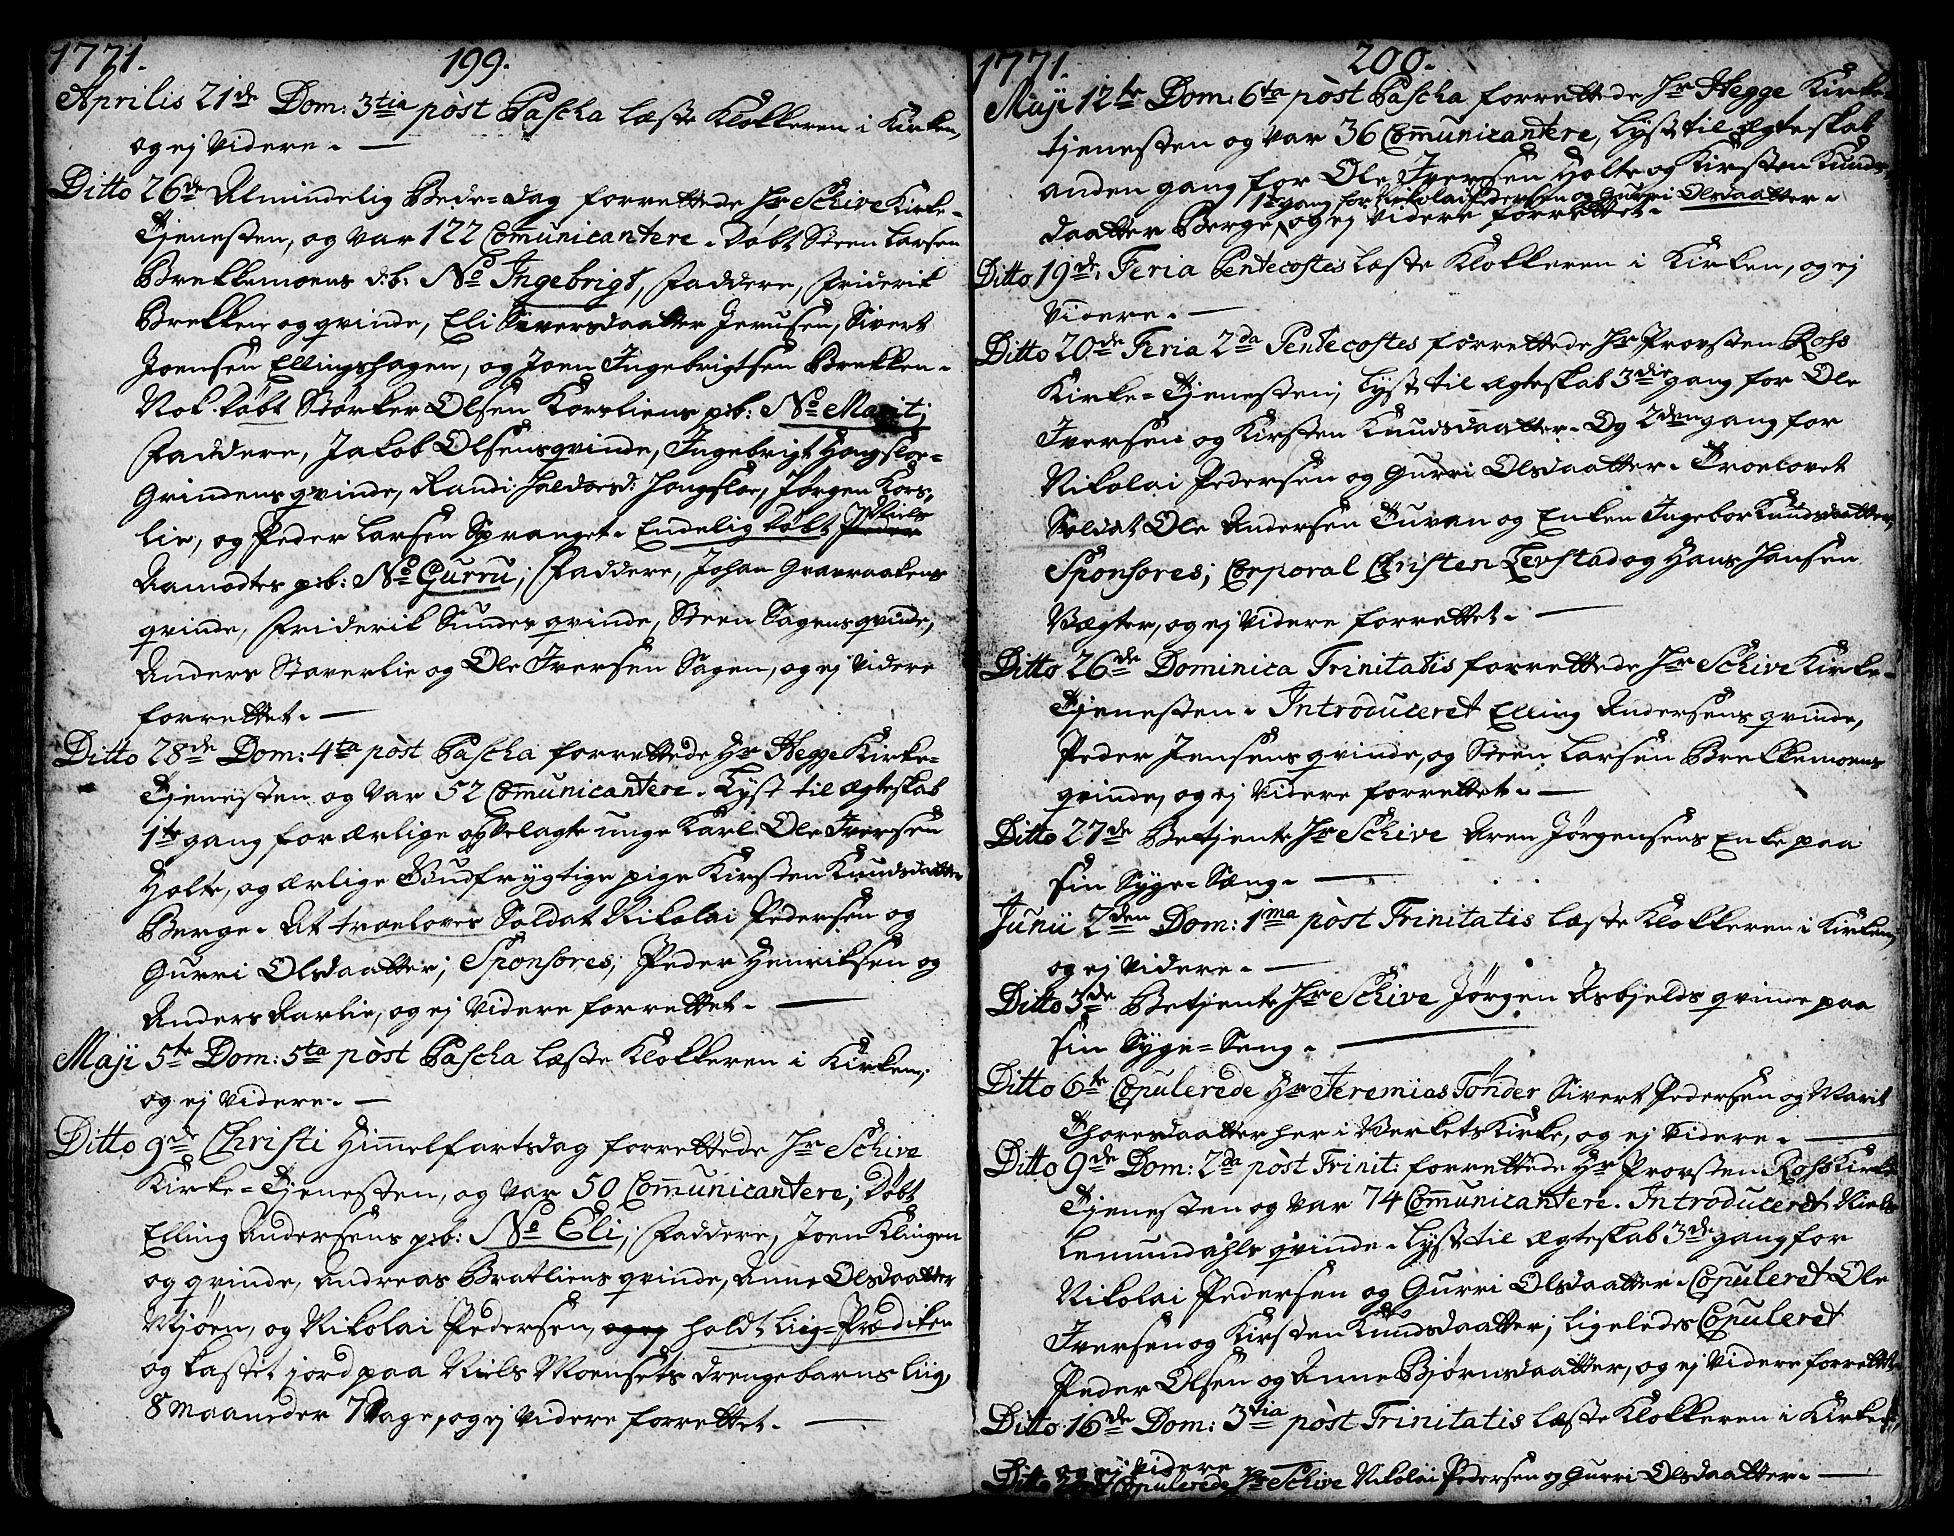 1771. 199.
Aprilis 21de Dom: 3tia pòst Pascha læste Klokkeren i Kirken,
og ej videre. —
Ditto 26de Almindelig Bede-Dag forrettede Hr Schive Kirke-
Tjenesten, og var 122 Com̄unicantere. Døbt Steen Larsen
Brekkemoens d:b: No Ingebrigt, Faddere, Friderik
Brekken og qvinde, Eli Siversdaatter Jerusen, Sivert
Joensen Ellingshagen, og Joen Ingebrigtsen Brekken.
Nok døbt Størker Olsen Korsliens p:b: No Marit;
Faddere, Jakob Olsens qvinde, Ingebrigt Hongsloe-
Grindens qvinde, Randi Haldorsd. Hongsloe, Jørgen Kors-
lie, og Peder Larsen Spranget. Endelig døbt Peder Niels
Aamodtes p:b: No Gurru; Faddere, Johan Gravraakens
qvinde, Friderik Sundes qvinde, Steen Sagens qvinde,
Anders Staverlie og Ole Iversen Sagen, og ej videre
forrettet. —
Ditto 28de Dom: 4ta pòst Pascha forrettede Hr Hegge Kirke-
Tjenesten og var 52 Com̄unicantere. Lyst til Ægteskab
1te gang for ærlige og velagte unge Karl Ole Iversen
Holte, og ærlige Gudfrygtige pige Kirsten Knudsdaatter
Berge. At troeloves Soldat Nikolai Pedersen og
Gurri Olsdaatter; Sponsores; Peder Henriksen og
Anders Aarlie, og ej videre forrettet. —
Maji 5te Dom: 5ta pòst Pascha læste Klokkeren i Kirken,
og ej videre. —
Ditto 9de Christi Him̄elfartsdag forrettede Hr Schive
Kirke-Tjenesten, og var 50 Com̄unicantere; Døbt
Elling Andersens p:b: No Eli; Faddere, Joen Klingen
og qvinde, Andreas Bratliens qvinde, Anne Olsdaatter
Mjøen, og Nikolai Pedersen, og ej holdt Liig-Prædiken
og kastet jord paa Niels Moensets drengebarns Liig,
8 maaneder 7 Dage, og ej videre forrettet. —
1771. 200.
Maji 12te Dom: 6ta pòst Pascha forrettede Hr Hegge Kirke-
tjenesten og var 36 Com̄unicantere, Lyst til Ægteskab
anden gang for Ole Iversen Holte og Kirsten Knuds-
1te gang for Nikolai Pedersen og Gurri Olsdaatter.
daatter Berge, og ej videre forrettet.
Ditto 19de: Feria Pentecostes læste Klokkeren i Kirken, og ej
videre. —
Ditto 20de Feria 2da Pentecostes forrettede Hr Provsten Rohs
Kirke-Tjenesten; Lyst til Ægteskab 3die gang for Ole
Iversen og Kirsten Knudsdaatter. Og 2den gang for
Nikolai Pedersen og Gurri Olsdaatter. Troelovet
Soldat Ole Andersen Tuvan og Enken Ingebor Knudsdaatter,
Sponsores; Corporal Christen Levstad og Hans Hansen
Vægter, og ej videre forrettet. —
Ditto 26de Dominica Trinitatis forrettede Hr Schive Kirke-
Tjenesten. Introduceret Elling Andersens qvinde,
Peder Jensens qvinde, og Steen Larsen Brekkemoens
qvinde, og ej videre forrettet. —
Ditto 27de Betjente Hr Schive Aren Jørgensens Enke paa
sin Syge-Sæng. —
Junii 2den Dom: 1ma pòst Trinitatis læste Klokkeren i Kirken,
og ej videre. —
Ditto 3de Betjente Hr Schive Jørgen Asbjelds qvinde paa
sin Syge-Seng. —
Ditto 6te Copulerede Hr Jeremias Tönder Sivert Pedersen og Marit
Thoresdaatter her i Verkets Kirke, og ej videre. —
Ditto 9de Dom: 2da pòst Trinit: forrettede Hr Provsten Rohs Kirke
Tjenesten og var 74 Com̄unicantere. Introduceret Niels
Lemundahls qvinde. Lyst til Ægteskab 3de gang for
Nikolai Pedersen og Gurri Olsdaatter. Copuleret Ole
Iversen og Kirsten Knudsdaatter; ligeledes Copuleret
Peder Olsen og Anne Bjørnsdaatter, og ej videre forrettet.
Ditto 16de Dom: 3tia pòst Trinitatis læste Klokkeren i Kirken,
og ej videre —
Ditto Copulerede Hr Schive Nikolai Pedersen og Gurri Olsdaatter. —